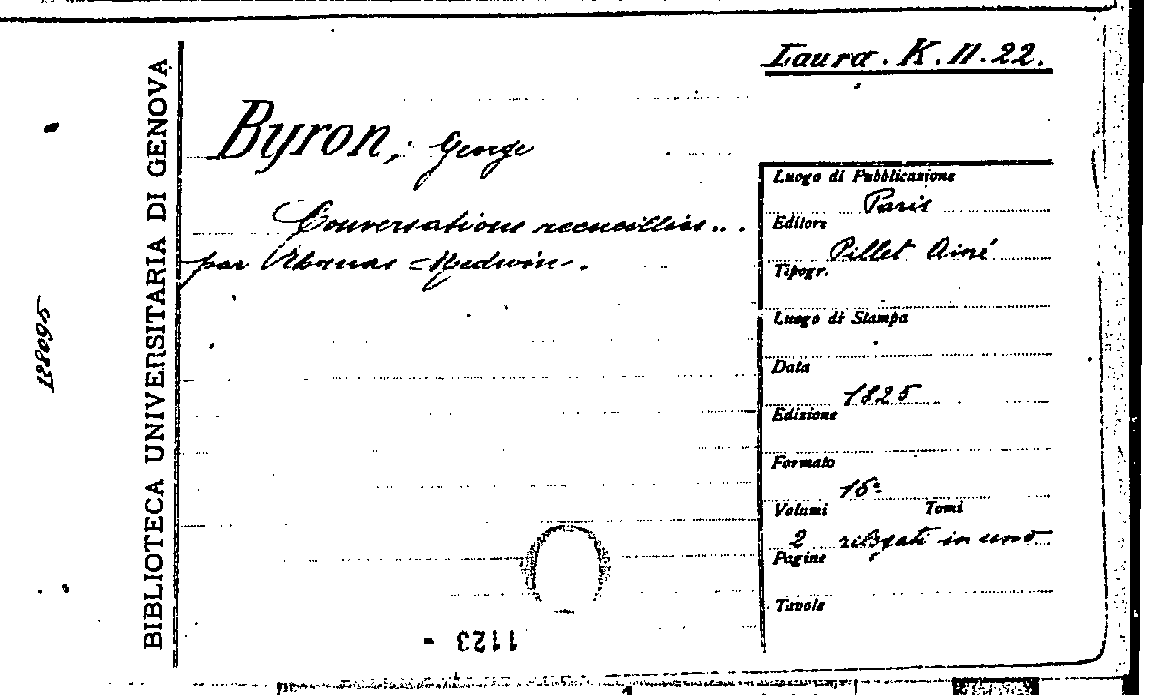 Laura. K. II. 22.
BIBLIOTECA UNIVERSITARIA DI GENOVA
Byron, George
Conversations recueillies...
par Thomas Medwin.
Luogo di Pubblicazione
Paris
Editore
Pillet Ainé
Tipogr.
Luogo di Stampa
Data
1825
Edizione
Formato
16º
Volumi Tomi
2 rilegati in uno
Pagine
Tavole
1123